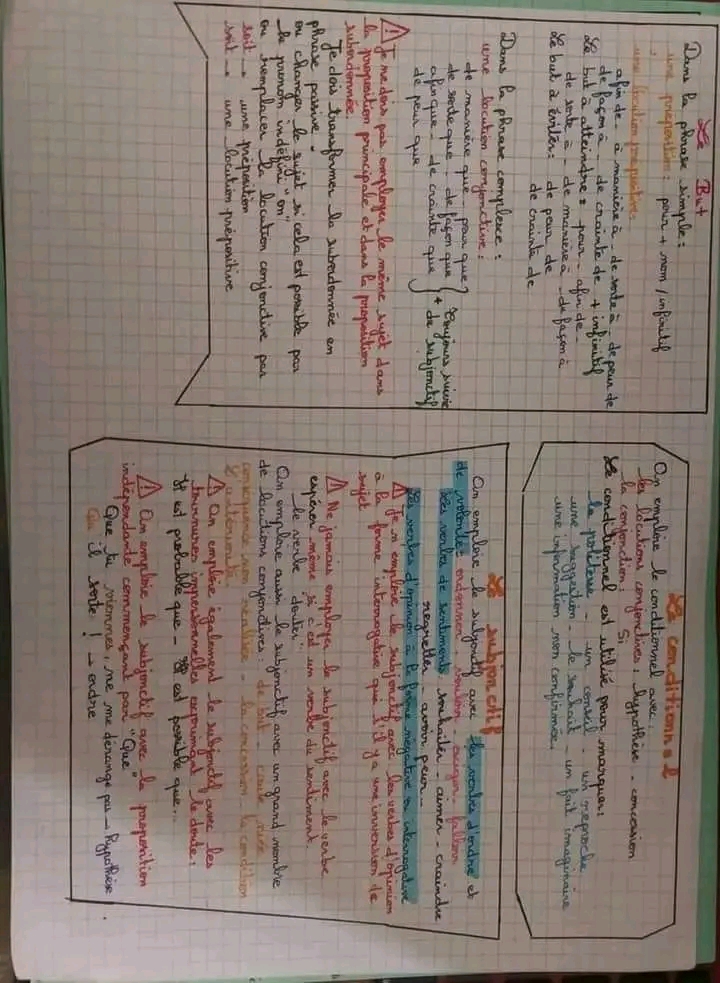 Le But
Dans la phrase simple :
une préposition : pour + nom / infinitif
une locution prépositive :
afin de - à manière à - de sorte à - de peur de
de façon à - de crainte de + infinitif
Le but à atteindre : pour - afin de -
de sorte à - de manière à - de façon à
Le but à éviter : de peur de
de crainte de
Dans la phrase complexe :
une locution conjonctive :
de manière que - pour que
de sorte que - de façon que
afin que - de crainte que
de peur que
} toujours suivie
+ du subjonctif
⚠ Je ne dois pas employer le même sujet dans
la proposition principale et dans la proposition
subordonnée.
Je dois transformer la subordonnée en
phrase passive.
ou changer le sujet si cela est possible par
le pronom indéfini "on"
ou remplacer la locution conjonctive par
soit → une préposition
soit → une locution prépositive
Le conditionnel
On emploie le conditionnel avec :
les locutions conjonctives : hypothèse - concession
la conjonction : Si
Le conditionnel est utilisé pour marquer :
la politesse - un conseil - un reproche
une suggestion - le souhait - un fait imaginaire
une information non confirmée.
Le subjonctif
On emploie le subjonctif avec les verbes d'ordre et
de volonté : ordonner - vouloir - exiger - falloir
les verbes de sentiments souhaiter aimer - craindre
regretter - avoir peur -
les verbes d'opinion à la forme négative ou interrogative
⚠ Je n'emploie le subjonctif avec les verbes d'opinion
à la forme interrogative que s'il y a une inversion de
sujet
⚠ Ne jamais employer le subjonctif avec le verbe
espérer même si c'est un verbe du sentiment
le verbe "douter"
On emploie aussi le subjonctif avec un grand nombre
de locutions conjonctives : de but - cause niée
conséquence non réalisée - la concession la condition
l'antériorité.
⚠ On emploie également le subjonctif avec les
tournures impersonnelles exprimant le doute :
Il est probable que - Il est possible que...
⚠ On emploie le subjonctif avec la proposition
indépendante commençant par "Que"
Que tu viennes, ne me dérange pas → hypothèse
Qu'il sorte ! → ordre